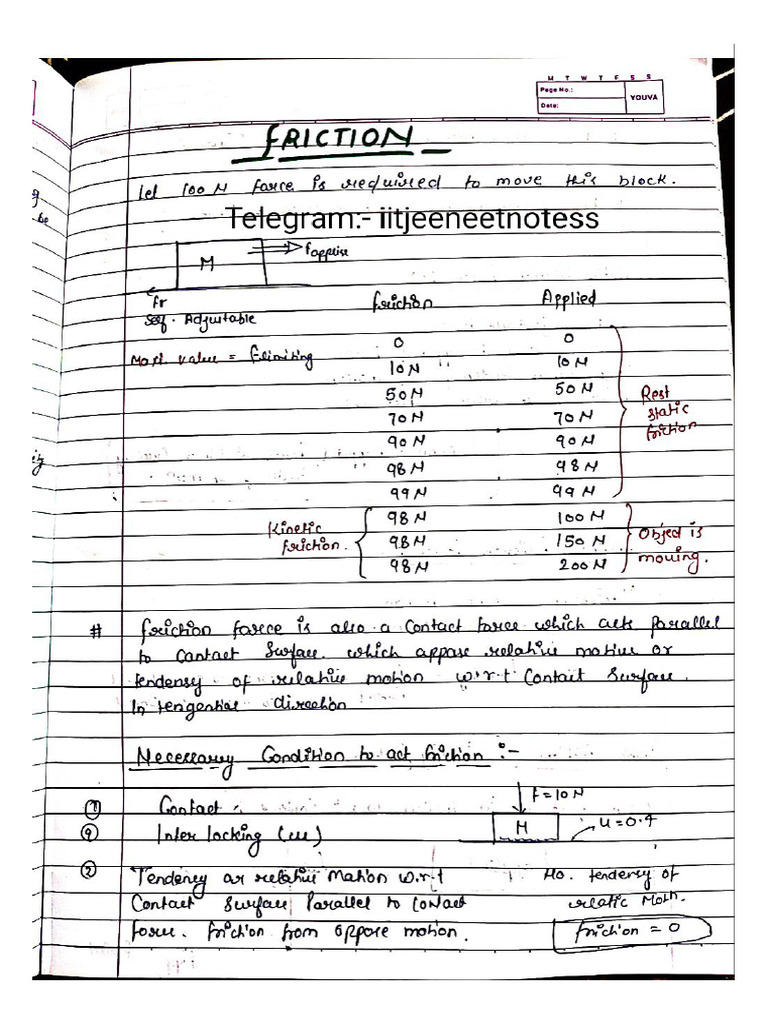 M T W T F S S
Page No.:
Date:
YOUVA
FRICTION
Let 100 N force is required to move this block.
Telegram:- iitjeeneetnotess
M
fr
Self. Adjustable
friction Applied
Max. value =
0 0
10N 10N
50N 50N
70N 70N
90N 90N
98N 98N
99N 99N
Rest
static
friction
Kinetic
friction.
98N 100N
98N 150N
98N 200N
Object is
moving.
# friction force is also a contact force which acts parallel
to contact surface which oppose relative motion or
tendency of relative motion w.r.t contact surface.
In tengential direction
Necessary Condition to act friction :-
① Contact
② Inter locking (u)
F=10N
M
u=0.4
② Tendency or relative motion w.r.t
contact surface parallel to contact
force. friction from oppose motion.
No. tendency of
relative motn.
friction = 0